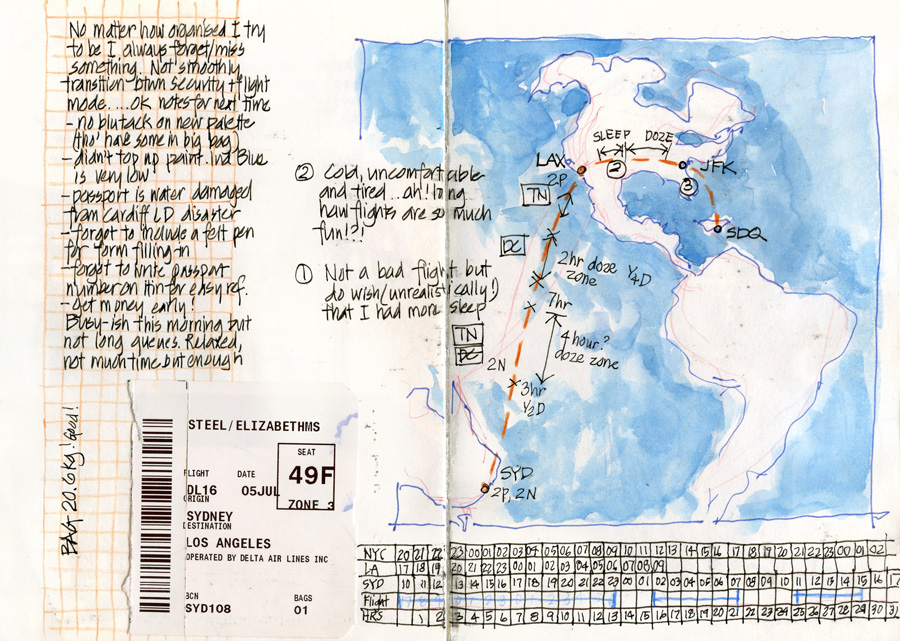 No matter how organised I try
to be I always forget/miss
something. Not smoothly
transition btwn security + flight
mode....OK notes for next time
- no blutack on new palette
(tho' have some in big bag)
- didn't top up paint. Ind Blue
is very low!
- passport is water damaged
from Cardiff LD disaster
- forgot to include a felt pen
for form filling-in
- forgot to write passport
number on itin for easy ref.
- Get money early!
Busy-ish this morning but
not long queues. Relaxed,
not much time but enough
BAG 20.6 kg! Good!
STEEL/ELIZABETHMS
FLIGHT DATE SEAT
DL16 05JUL 49F
ORIGIN ZONE 3
SYDNEY
DESTINATION
LOS ANGELES
OPERATED BY DELTA AIR LINES INC
BCN BAGS
SYD108 01
② Cold, uncomfortable
and tired...ah! long
haul flights are so much
fun!?!
① Not a bad flight but
do wish/unrealistically!)
that I had more sleep
SLEEP DOZE
LAX
② JFK
2P
③
TN
SDQ
DC
2hr doze
zone Y4D
7hr
4 hour?
doze zone
TN
DC
2N
3hr
Y2D
SYD
2P, 2N
NYC 20 21 22 23 00 01 02 03 04 05 06 07 08 09 10 11 12 13 14 15 16 17 18 19 20 21 22 23 00 01 02
LA 17 18 19 20 21 22 23 00 01 02 03 04 05 06 07 08 09
SYD 10 11 12 13 14 15 16 17 18 19 20 21 22 23 00 01 02 03 04 05 06 07 08 09 10 11 12 13 14 15 16 17
Flight
HRS 1 2 3 4 5 6 7 8 9 10 11 12 13 14 15 16 17 18 19 20 21 22 23 24 25 26 27 28 29 30 31